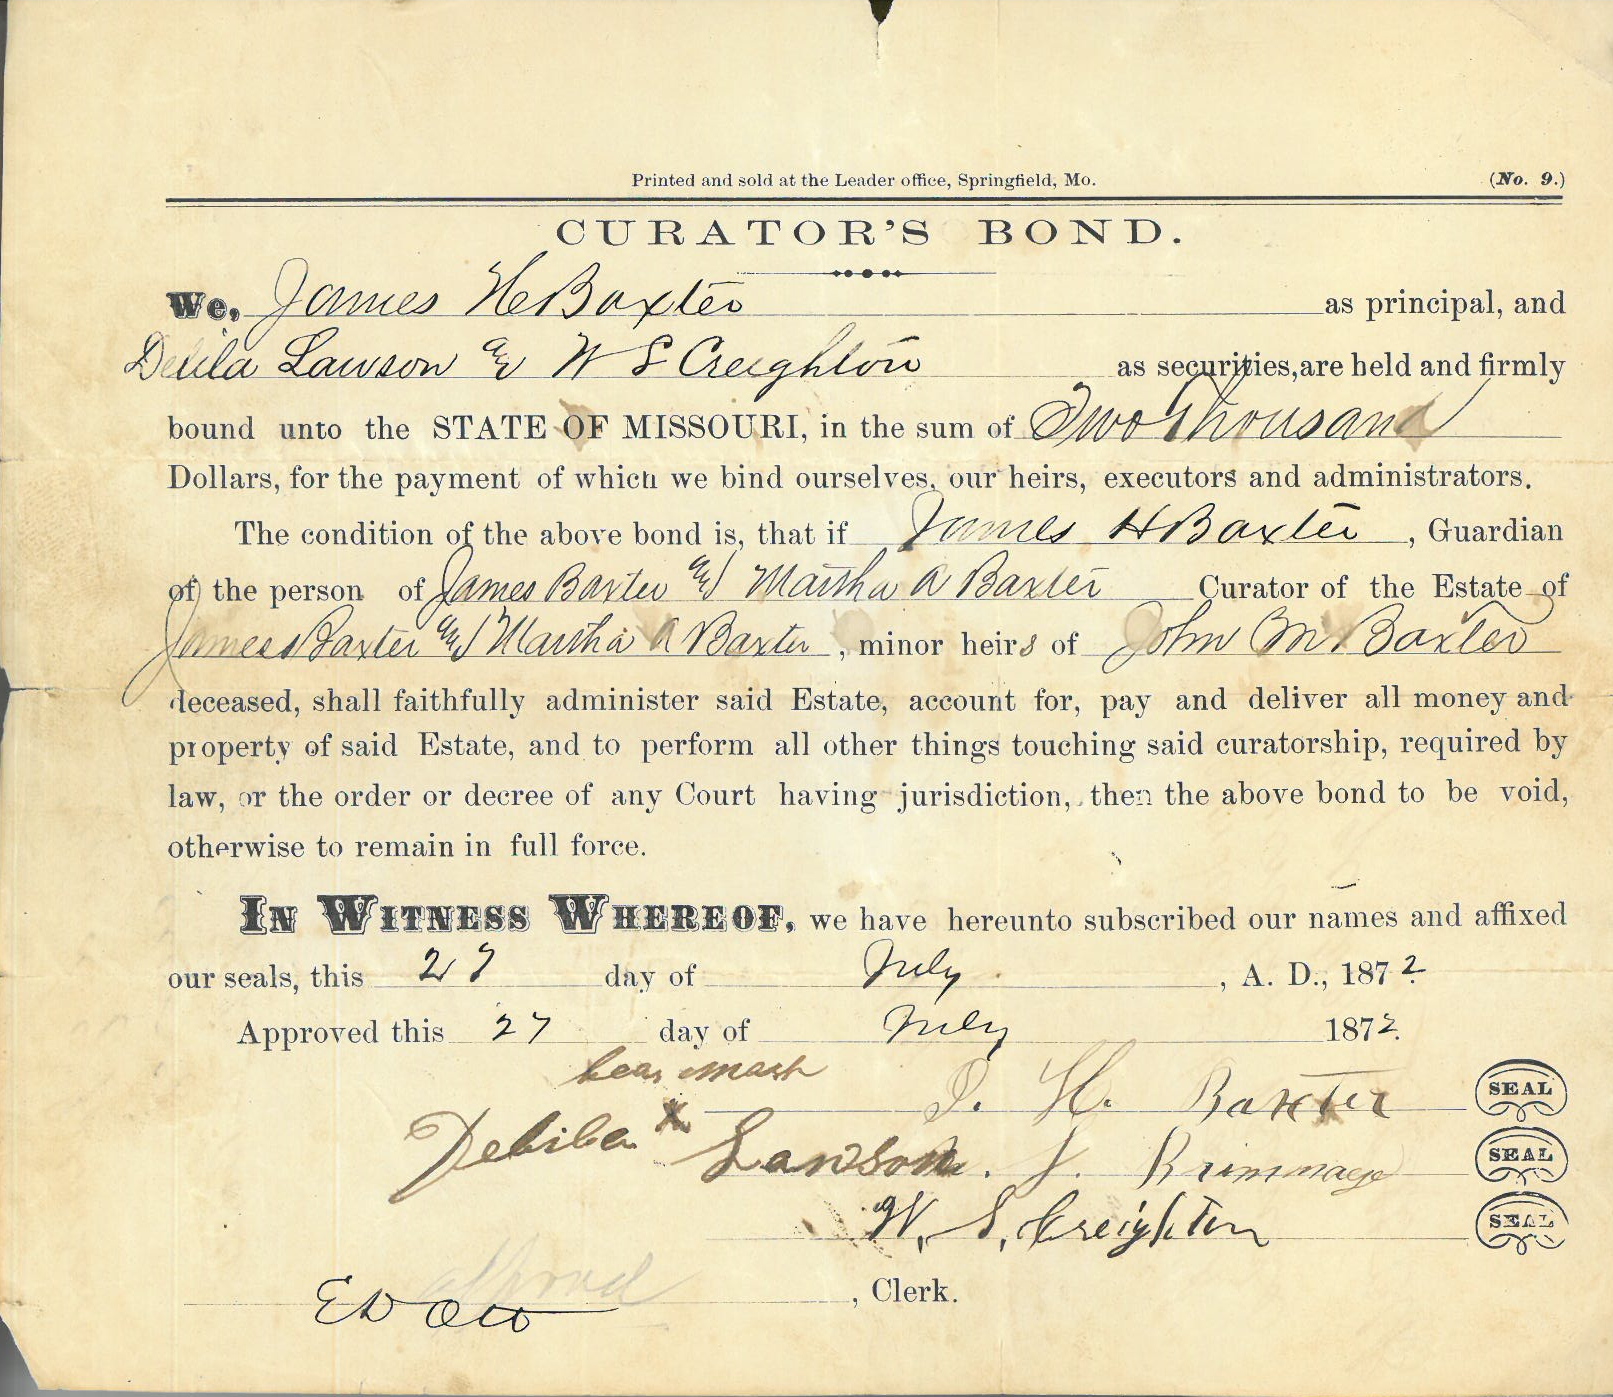 Printed and sold at the Leader office, Springfield, Mo. (No. 9.)
CURATOR'S BOND.
We, James H Baxter as principal, and
Delila Lawson & W S Creighton as securities, are held and firmly
bound unto the STATE OF MISSOURI, in the sum of Two Thousand
Dollars, for the payment of which we bind ourselves, our heirs, executors and administrators.
The condition of the above bond is, that if James H Baxter, Guardian
of the person of James Baxter and Martha A Baxter Curator of the Estate of
James Baxter and Martha A Baxter, minor heirs of John M Baxter
deceased, shall faithfully administer said Estate, account for, pay and deliver all money and
property of said Estate, and to perform all other things touching said curatorship, required by
law, or the order or decree of any Court having jurisdiction, then the above bond to be void,
otherwise to remain in full force.
IN WITNESS WHEREOF, we have hereunto subscribed our names and affixed
our seals, this 27 day of July, A. D., 1872.
Approved this 27 day of July 1872.
hear mark
J. H. Baxter SEAL
Delila x Lawson. J. SEAL
W. S. Creighton SEAL
, Clerk.